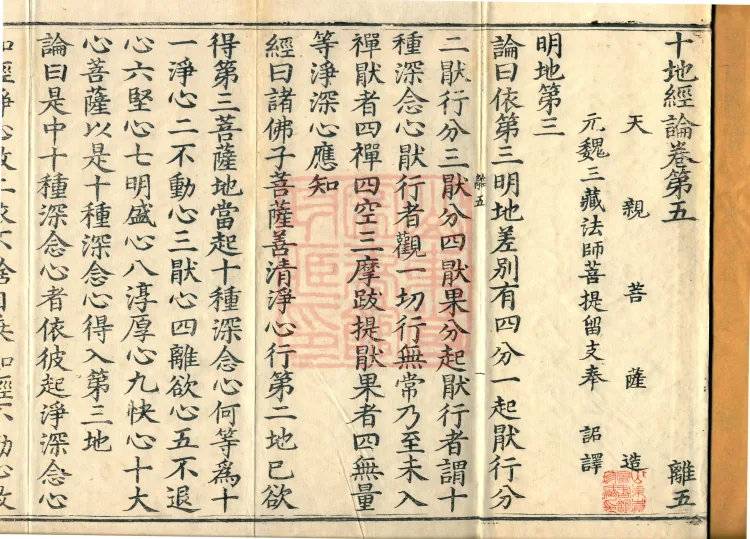 十地經論卷第五 離五
天親菩薩造
元魏三藏法師菩提留支奉 詔譯
明地第三
論曰依第三明地差別有四分一起猒行分
離五
二猒行分三猒分四猒果分起猒行者謂十
種深念心猒行者觀一切行無常乃至未入
禪猒者四禪四空三摩跋提猒果者四無量
等淨深心應知
經曰諸佛子菩薩善清淨心行第二地已欲
得第三菩薩地當起十種深念心何等爲十
一淨心二不動心三猒心四離欲心五不退
心六堅心七明盛心八淳厚心九快心十大
心菩薩以是十種深念心得入第三地
論曰是中十種深念心者依彼起淨深念心
如經淨心故二依不捨自乘如經不動心故